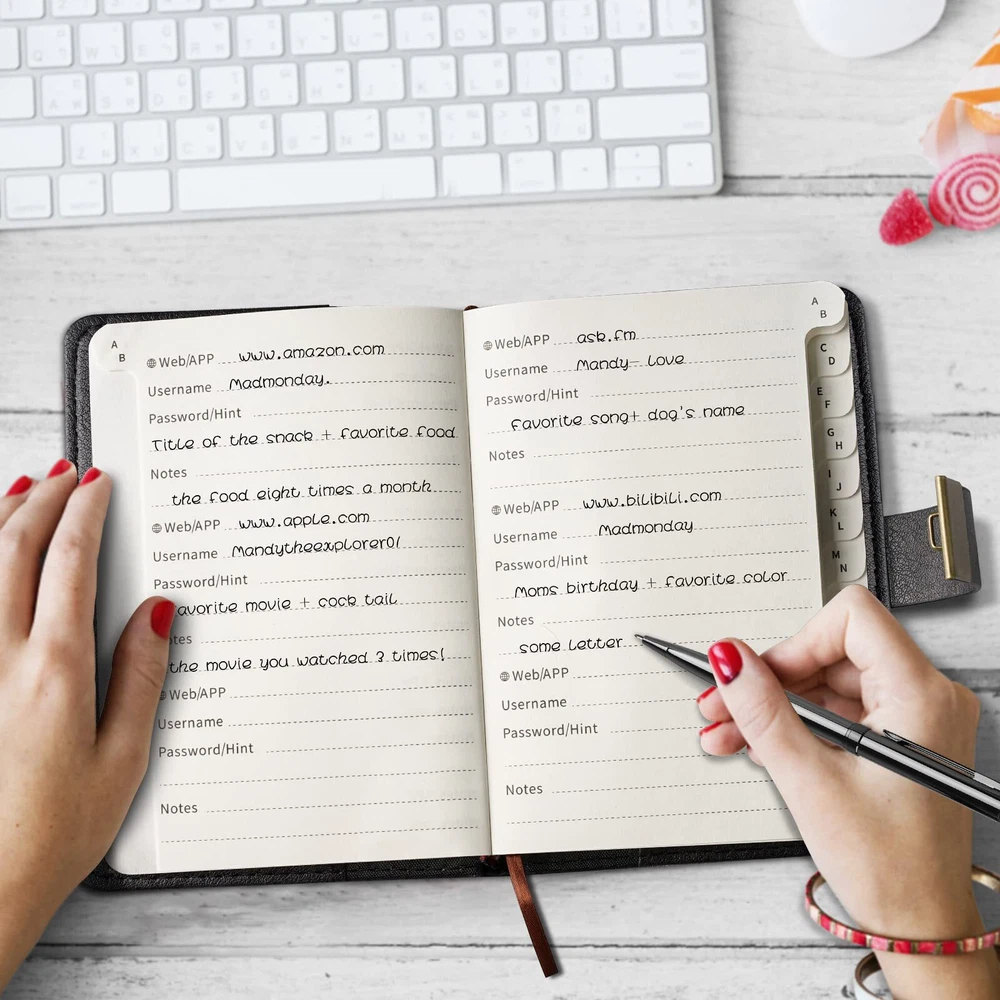 A
B
Web/APP www.amazon.com
Username Madmonday.
Password/Hint
Title of the snack + favorite food
Notes
the food eight times a month
Web/APP www.apple.com
Username Mandytheexplorer01
Password/Hint
avorite movie + cock tail
tes
the movie you watched 3 times!
Web/APP
Username
Password/Hint
Notes
A
B
Web/APP ask.fm
Username Mandy- Love
Password/Hint
favorite song+ dog's name
Notes
Web/APP www.bilibili.com
Username Madmonday
Password/Hint
Moms birthday + favorite color
Notes
some letter
Web/APP
Username
Password/Hint
Notes
C
D
E
F
G
H
I
J
K
L
M
N